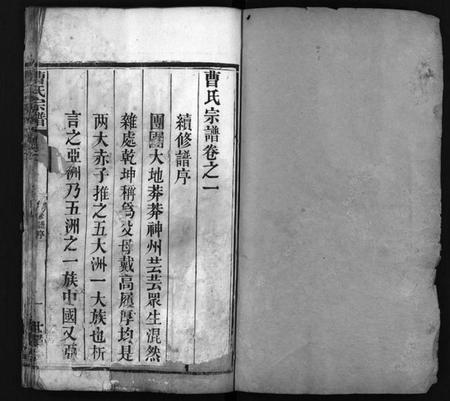 曹氏宗譜卷之一
續修譜序
團團大地莽莽神州芸芸眾生混然
雜處乾坤稱為父母戴高履厚均是
两大赤子推之五大洲一大族也析
言之亞洲乃五洲之一族中國又亞
曹氏宗譜